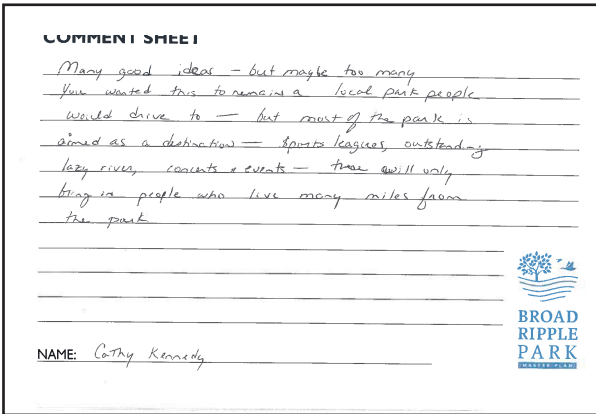 COMMENT SHEET
Many good ideas – but maybe too many
You wanted this to remain a local park people
would drive to — but most of the park is
aimed as a destination — sports leagues, outstanding
lazy river, concerts & events — these will only
bring in people who live many miles from
the park
BROAD
RIPPLE
PARK
MASTER PLAN
NAME: Cathy Kennedy